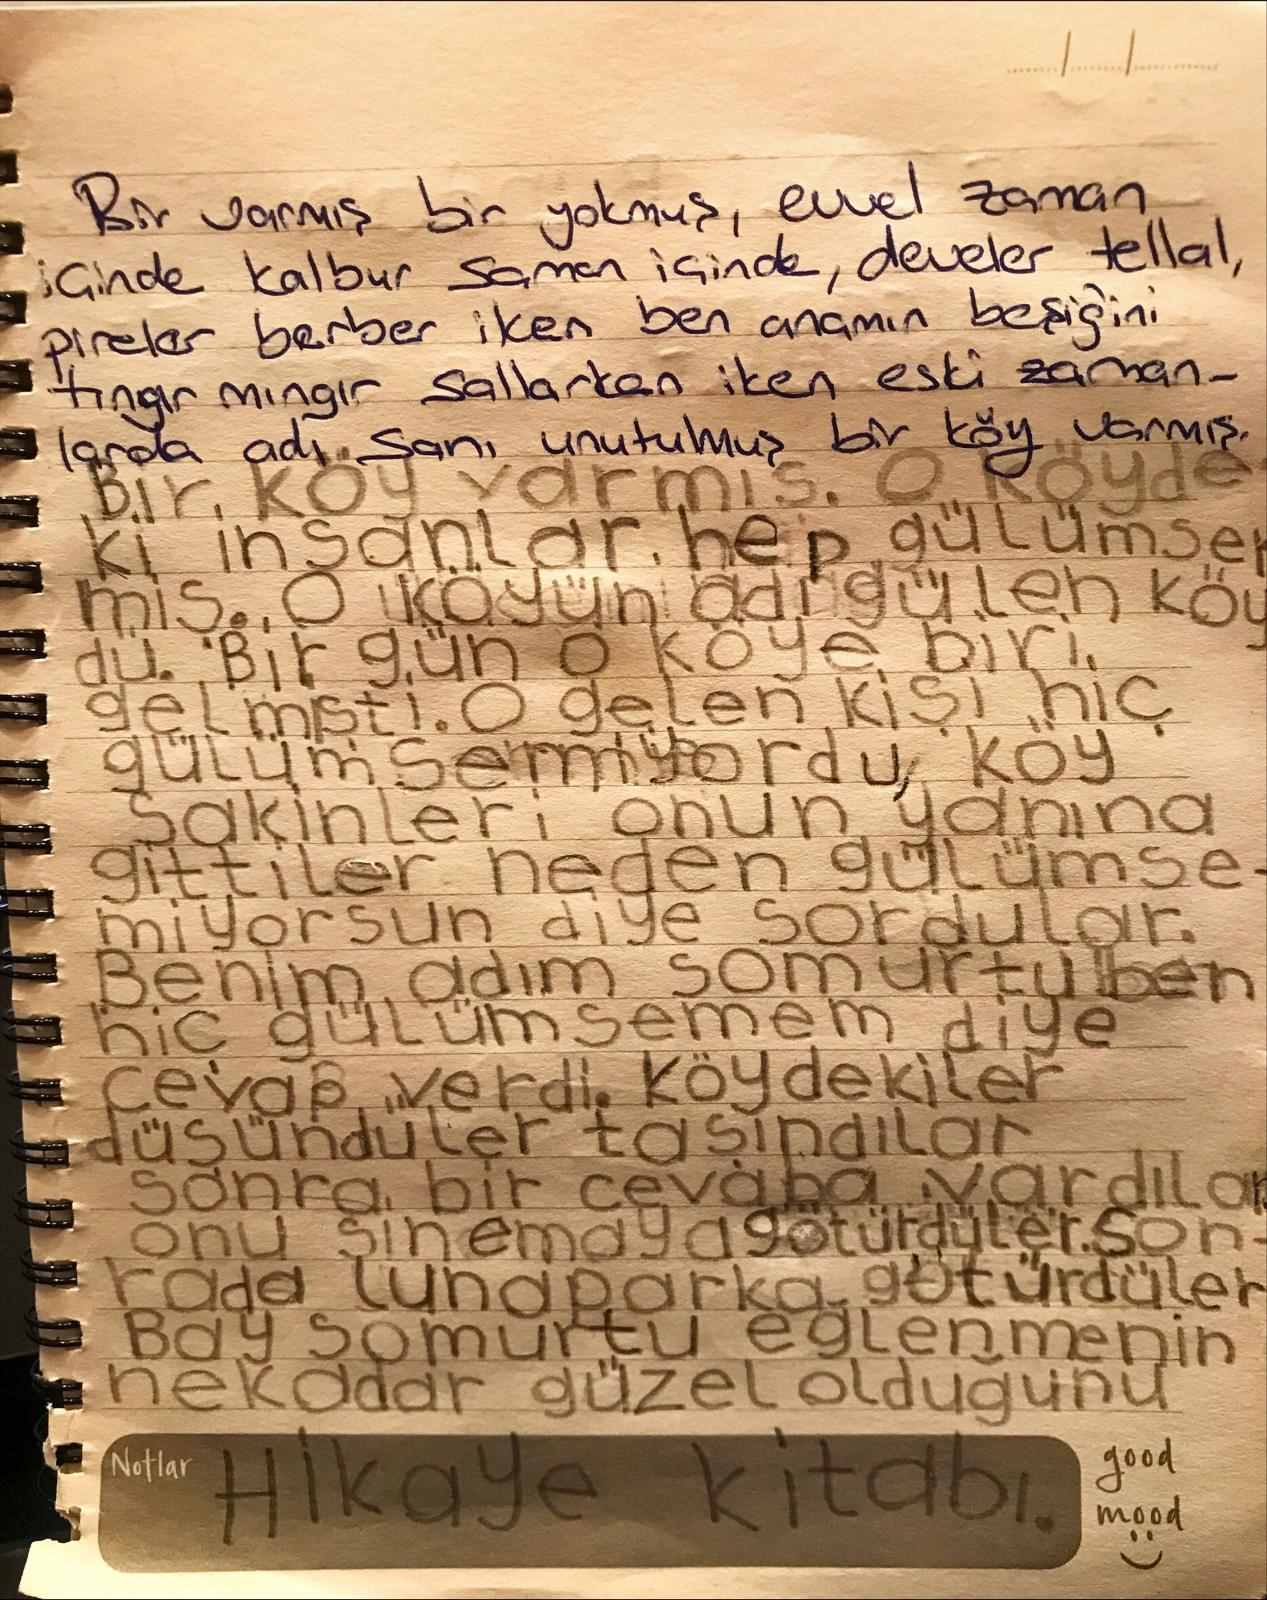 Bir varmış bir yokmuş, evvel zaman
içinde kalbur saman içinde, develer tellal,
pireler berber iken ben anamın beşiğini
tıngır mıngır sallarken iken eski zaman-
larda adı sanı unutulmuş bir köy varmış.
Bir köy varmış. O köyde
ki insanlar hep gülümser
miş. O köyün adı gülen köy
dü. Bir gün o köye biri
gelmişti. O gelen kişi hiç
gülümsemiyordu, köy
sakinleri onun yanına
gittiler neden gülümse-
miyorsun diye sordular.
Benim adım somurtu ben
hiç gülümsemem diye
cevap verdi. Köydekiler
düşündüler taşındılar
sonra bir cevaba vardılar
onu sinemaya götürdüler. Son-
rada lunaparka götürdüler
Bay somurtu eğlenmenin
nekadar güzel olduğunu
Notlar
Hikaye kitabı.
good
mood